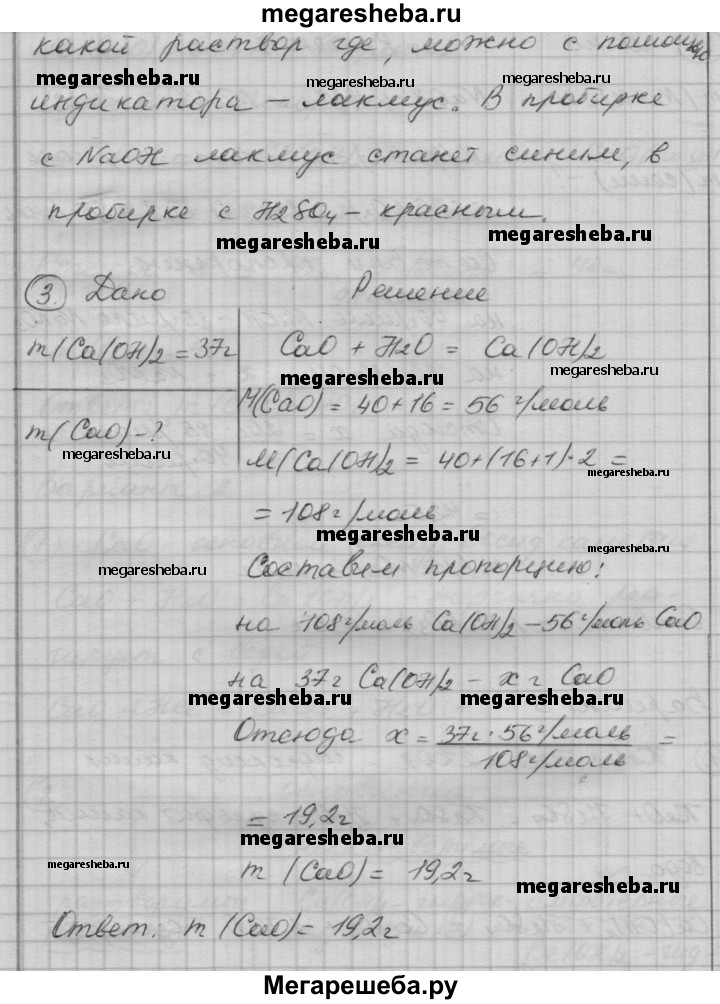 megaresheba.ru
какой раствор где, можно с помощью
megaresheba.ru megaresheba.ru
индикатора – лакмус. В пробирке
megaresheba.ru megaresheba.ru
с NaOH лакмус станет синим, в
пробирке с H2SO4 – красным.
megaresheba.ru
3. Дано Решение
m(Ca(OH)2 = 37г CaO + H2O = Ca(OH)2
megaresheba.ru megaresheba.ru
m(CaO) – ? M(CaO) = 40+16 = 56 г/моль
megaresheba.ru
M(Ca(OH)2 = 40+(16+1)·2 =
= 108 г/моль
megaresheba.ru
megaresheba.ru Составим пропорцию:
на 108 г/моль Ca(OH)2 – 56 г/моль CaO
на 37г Ca(OH)2 – x г CaO
megaresheba.ru megaresheba.ru
Отсюда x = 37г · 56 г/моль =
108 г/моль
= 19,2г
megaresheba.ru
megaresheba.ru m (CaO) = 19,2г
megaresheba.ru
Ответ. m (CaO) = 19,2г
Мегарешеба.ру